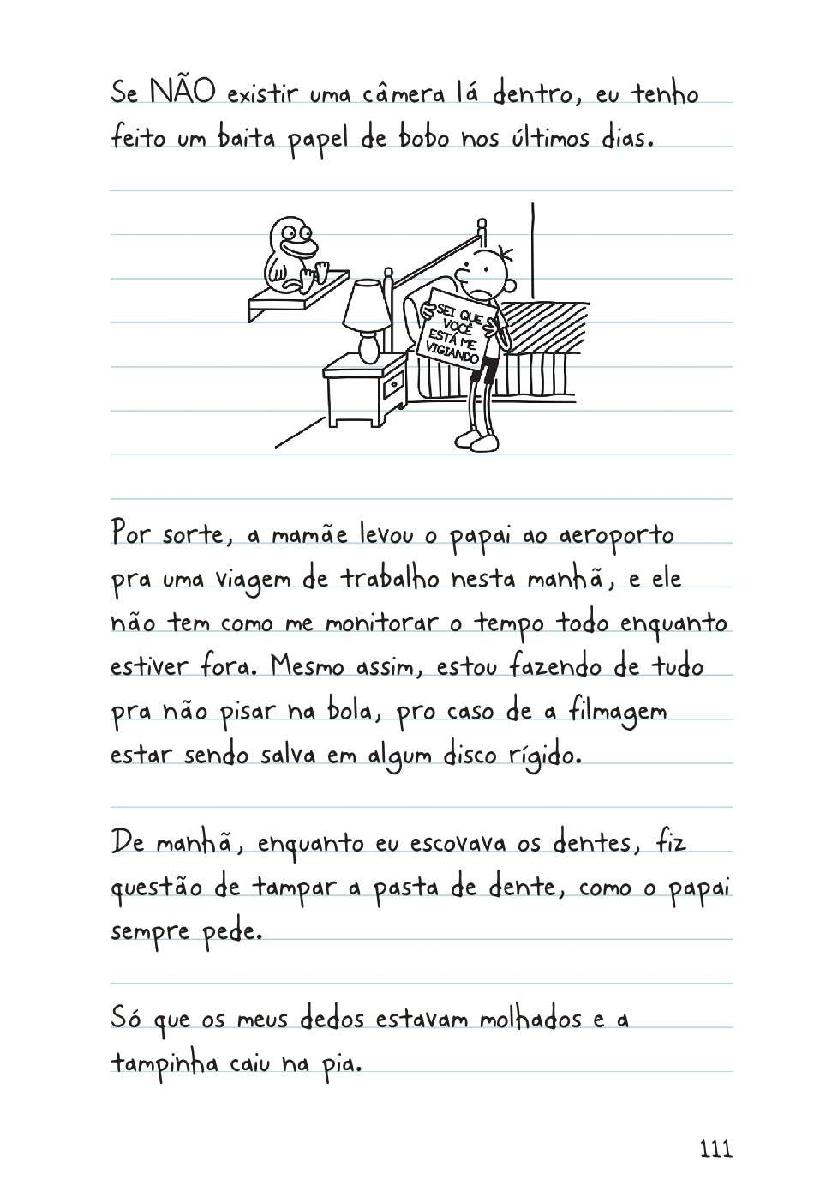 Se NÃO existir uma câmera lá dentro, eu tenho
feito um baita papel de bobo nos últimos dias.
SEI QUE
VOCÊ
ESTÁ ME
VIGIANDO
Por sorte, a mamãe levou o papai ao aeroporto
pra uma viagem de trabalho nesta manhã, e ele
não tem como me monitorar o tempo todo enquanto
estiver fora. Mesmo assim, estou fazendo de tudo
pra não pisar na bola, pro caso de a filmagem
estar sendo salva em algum disco rígido.
De manhã, enquanto eu escovava os dentes, fiz
questão de tampar a pasta de dente, como o papai
sempre pede.
Só que os meus dedos estavam molhados e a
tampinha caiu na pia.
111